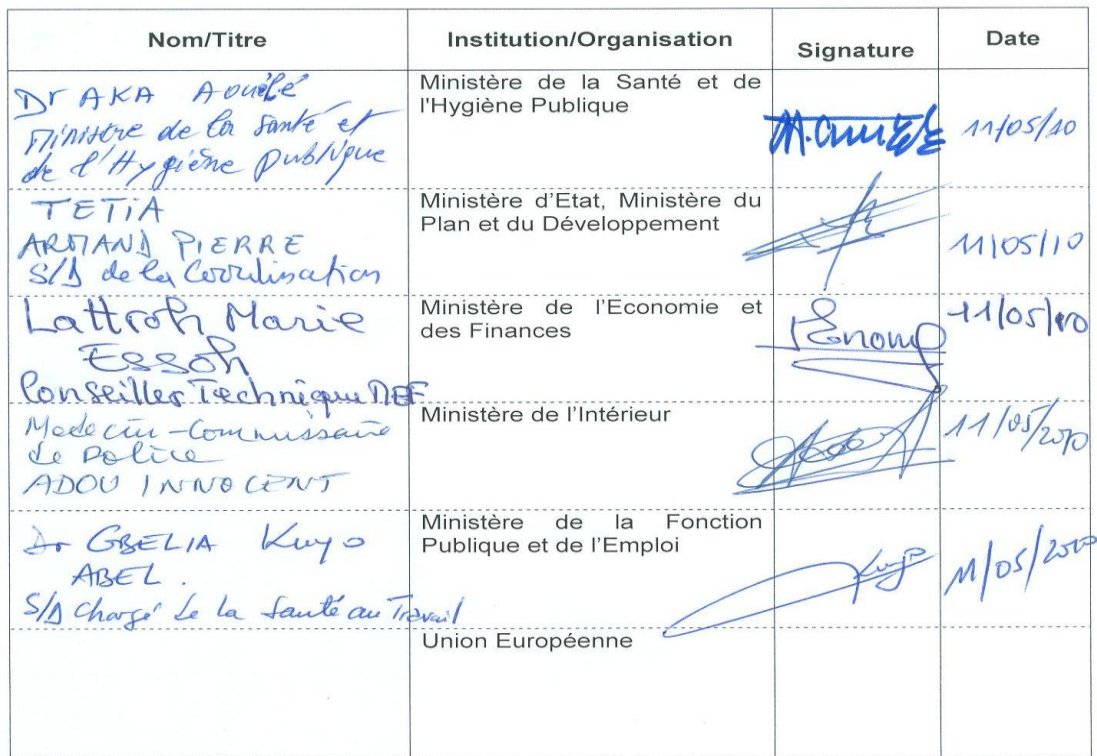 Nom/Titre Institution/Organisation Signature Date
Dr AKA Aouélé
Ministre de la Santé et
de l'Hygiène Publique
Ministère de la Santé et de
l'Hygiène Publique
11/05/10
TETIA
ARMAND PIERRE
S/D de la Coordination
Ministère d'Etat, Ministère du
Plan et du Développement
11/05/10
Lattroh Marie
Essoh
Conseiller Technique MEF
Ministère de l'Economie et
des Finances
11/05/10
Medecin-Commissaire
de Police
ADOU INNOCENT
Ministère de l'Intérieur
11/05/2010
Dr GBELIA Kuyo
ABEL.
S/D Chargé de la Santé au Travail
Ministère de la Fonction
Publique et de l'Emploi
11/05/2010
Union Européenne